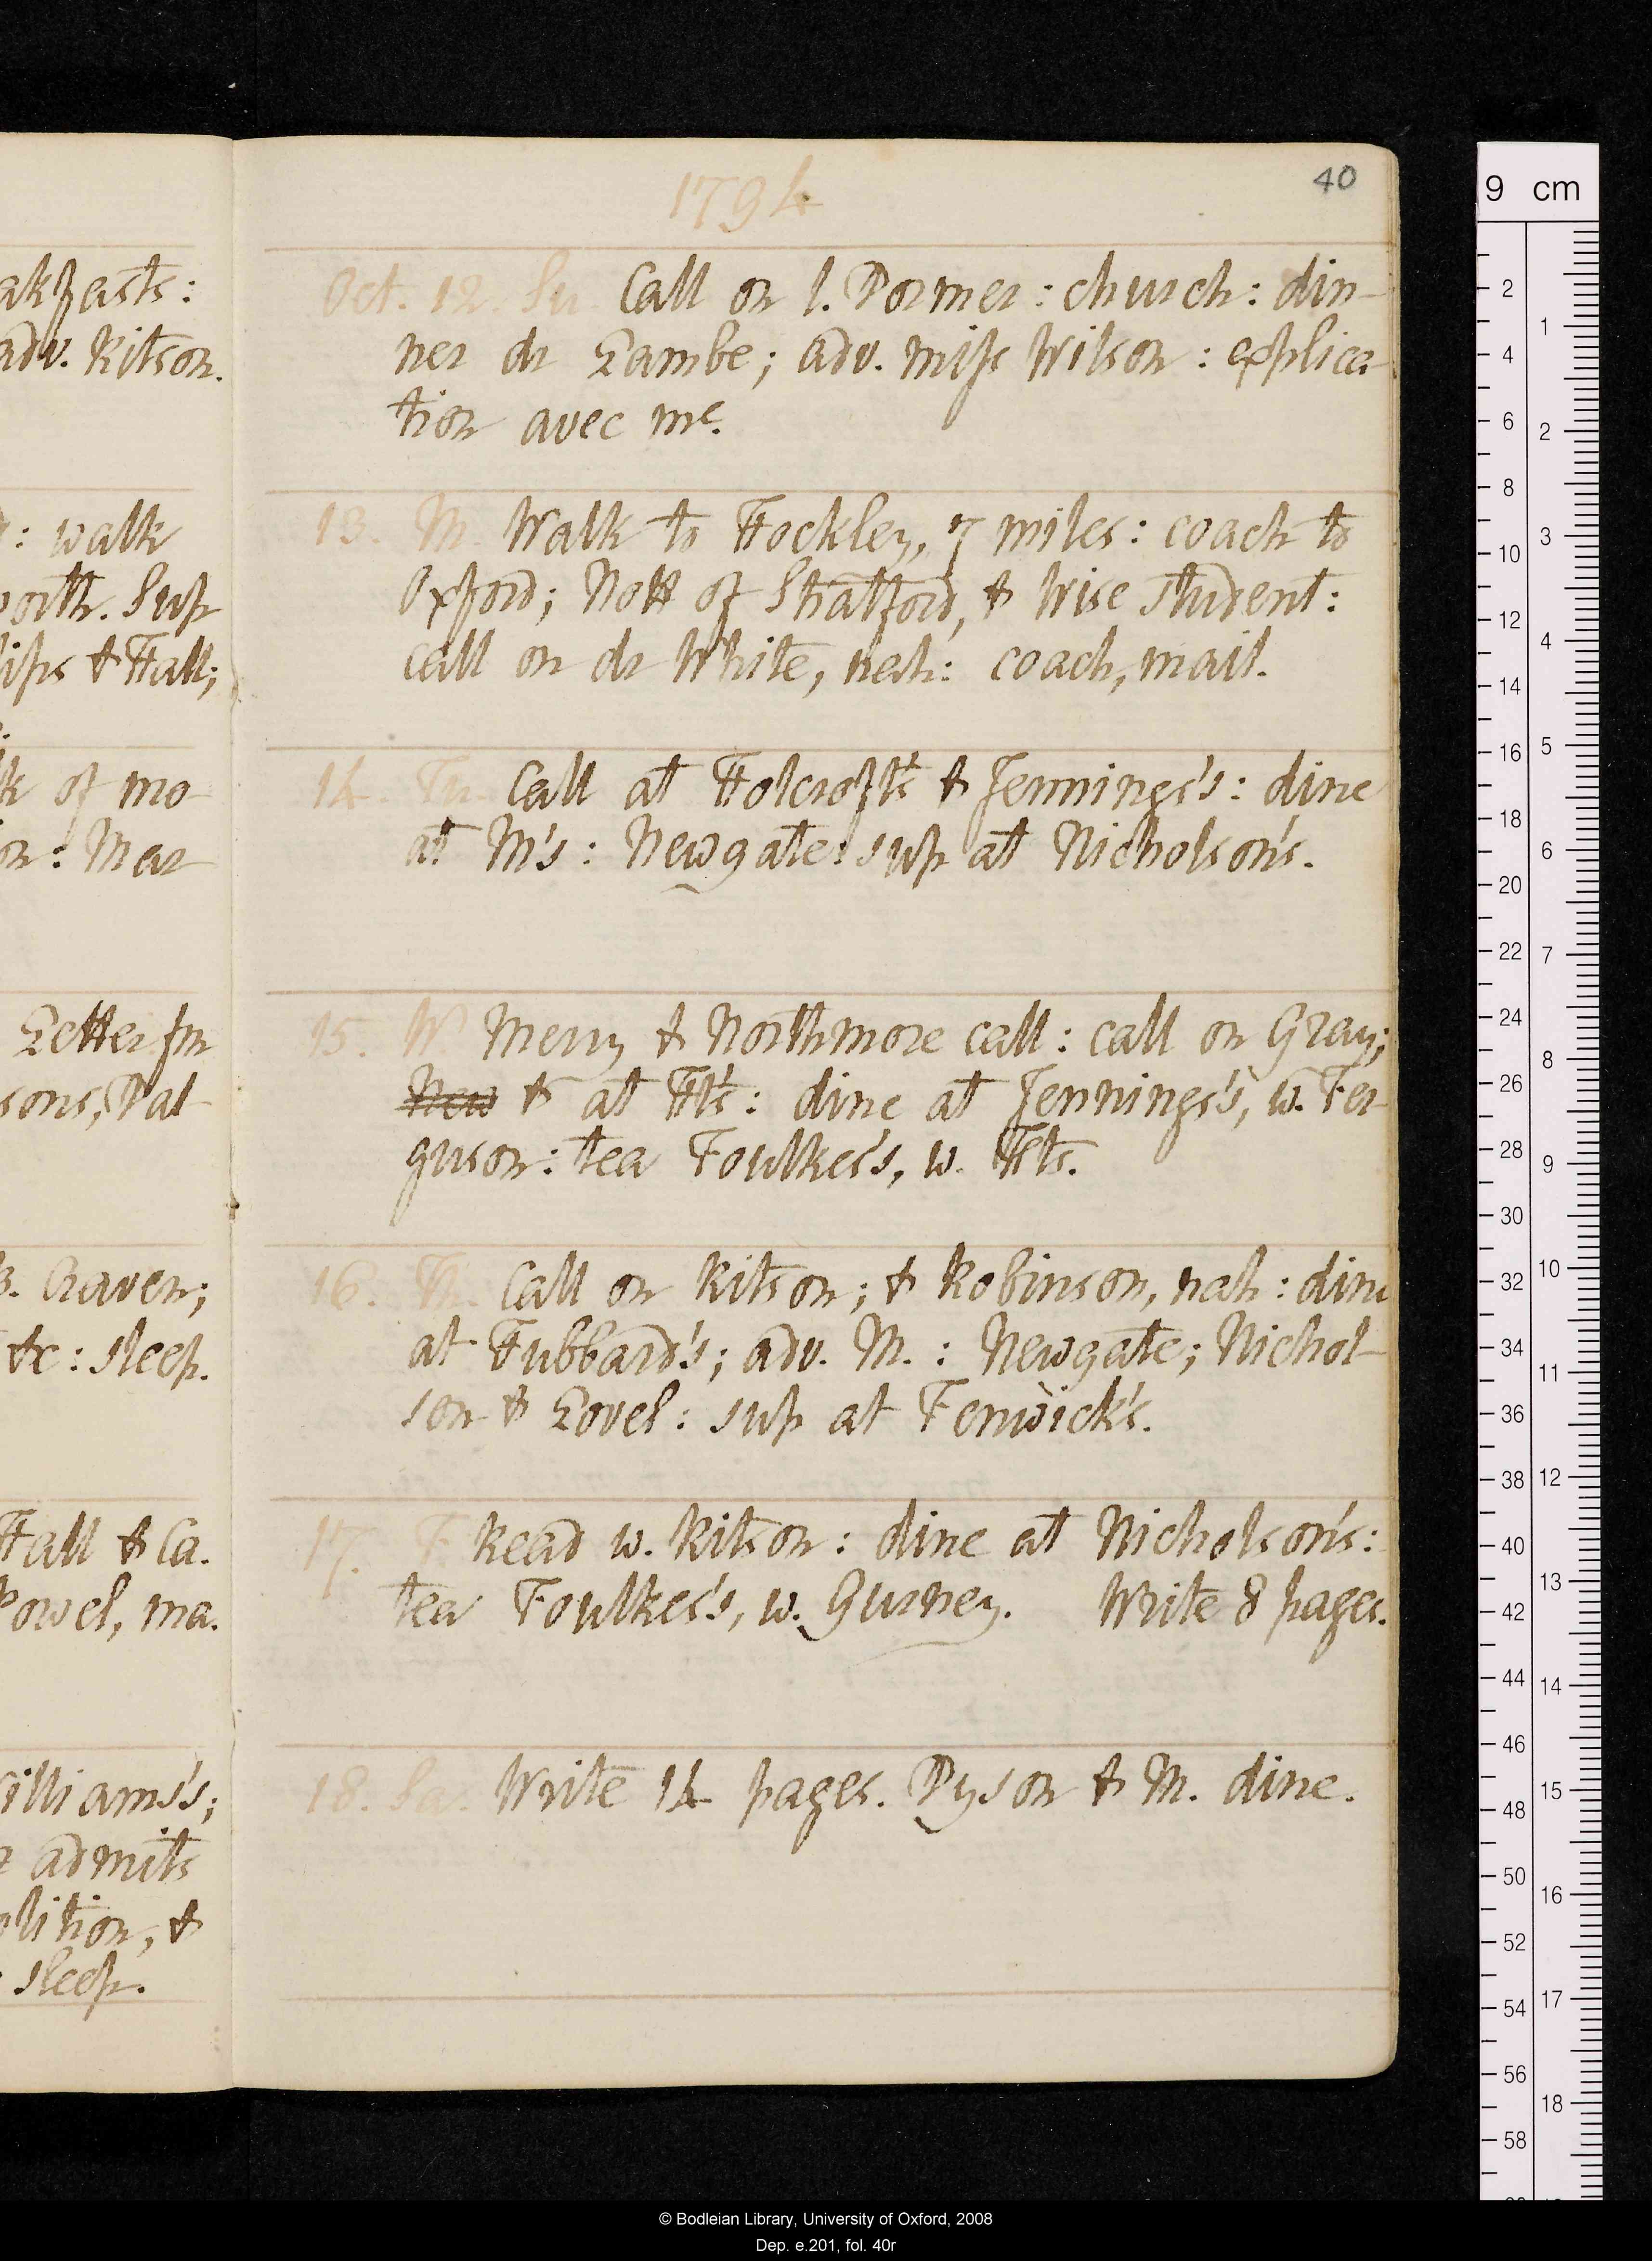 akfasts:
adv. Kitson.
: walk
orth. Sup
lips & Hall;
k of mo
on: Mar
Letter fm
sons, Pal
B. Craven;
&c: sleep.
Hall & Ca.
Powel, ma.
illiams's;
admits
olition, &
sleep.
1794
40
Oct. 12. Su. Call on l. Dormer: church: din-
ner dr Lambe; adv. miss Wilson: explica-
tion avec me.
13. M. Walk to Hockley, 7 miles: coach to
Oxford; Nott of Stratford, & Wise student:
call on dr White, nah: coach, mail.
14. Tu. Call at Holcroft's & Jennings's: dine
at M's: Newgate: sup at Nicholson's.
15. W. Merry & Northmore call: call on Gray;
New & at Ht's: dine at Jennings's, w. Fer-
guson: tea Foulkes's, w. Hts.
16. Th. Call on Kitson; & Robinson, nah: dine
at Hubbard's; adv. M.: Newgate; Nichol-
son & Lovel: sup at Fenwick's.
17. F. Read w. Kitson: dine at Nicholson's:
tea Foulkes's, w. Gurney. Write 8 pages.
18. Sa. Write 14 pages. Dyson & M. dine.
9 cm
2
4
6
8
10
12
14
16
18
20
22
24
26
28
30
32
34
36
38
40
42
44
46
48
50
52
54
56
58
1
2
3
4
5
6
7
8
9
10
11
12
13
14
15
16
17
18
© Bodleian Library, University of Oxford, 2008
Dep. e.201, fol. 40r